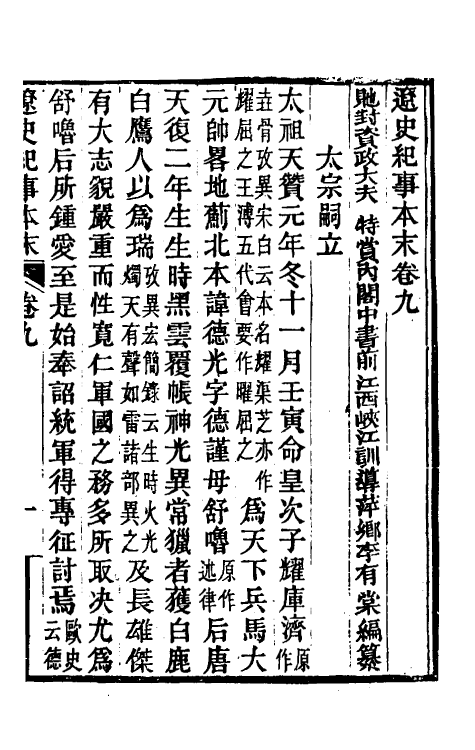 遼史紀事本末卷九
貤封資政大夫 特賞內閣中書前江西峽江訓導萍鄉李有棠編纂
太宗嗣立
太祖天贊元年冬十一月壬寅命皇次子耀庫濟原作
垚骨攷異宋白云本名耀渠芝亦作耀屈之王溥五代會要作曜屈之爲天下兵馬大
元帥畧地薊北本諱德光字德謹母舒嚕原作述律后唐
天復二年生生時黑雲覆帳神光異常獵者獲白鹿
白鷹人以爲瑞攷異宏簡錄云生時火光燭天有聲如雷諸部異之及長雄傑
有大志貌嚴重而性寬仁軍國之務多所取決尤爲
舒嚕后所鍾愛至是始奉詔統軍得專征討焉歐史云德
遼史紀事本末 卷九 一